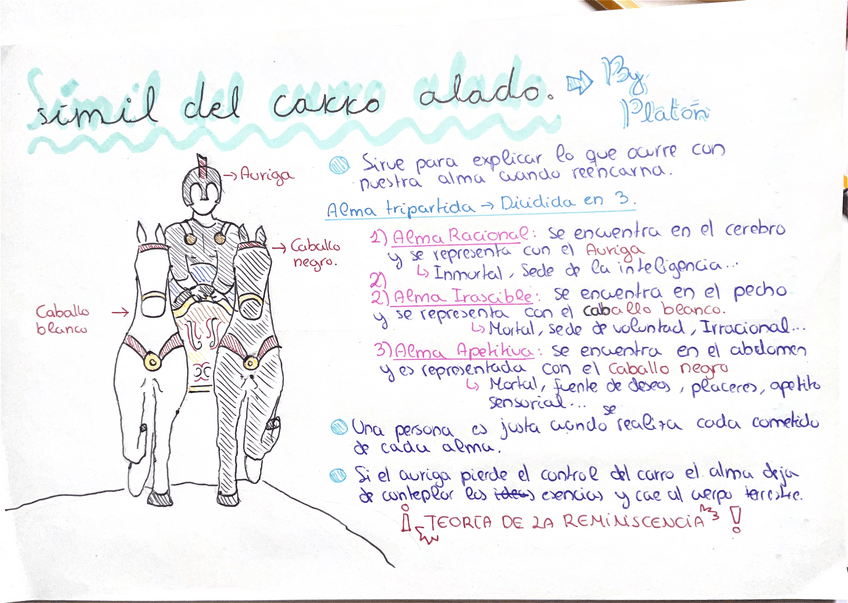 símil del carro alado. ⇨ By Platón
→ Auriga
→ Caballo
negro.
Caballo →
blanco
Sirve para explicar lo que ocurre con
nuestra alma cuando reencarna.
Alma tripartida → Dividida en 3.
1) Alma Racional: se encuentra en el cerebro
y se representa con el Auriga
↳ Inmortal, Sede de la inteligencia...
2)
2) Alma Irascible: se encuentra en el pecho
y se representa con el caballo blanco.
↳ Mortal, sede de voluntad, Irracional...
3) Alma Apetitiva: se encuentra en el abdomen
y es representada con el Caballo negro
↳ Mortal, fuente de deseos, placeres, apetito
sensorial...
Una persona es justa cuando se realiza cada cometido
de cada alma.
Si el auriga pierde el control del carro el alma deja
de conteplar las ideas esencias y cae al cuerpo terrestre.
¡TEORÍA DE LA REMINISCENCIA!